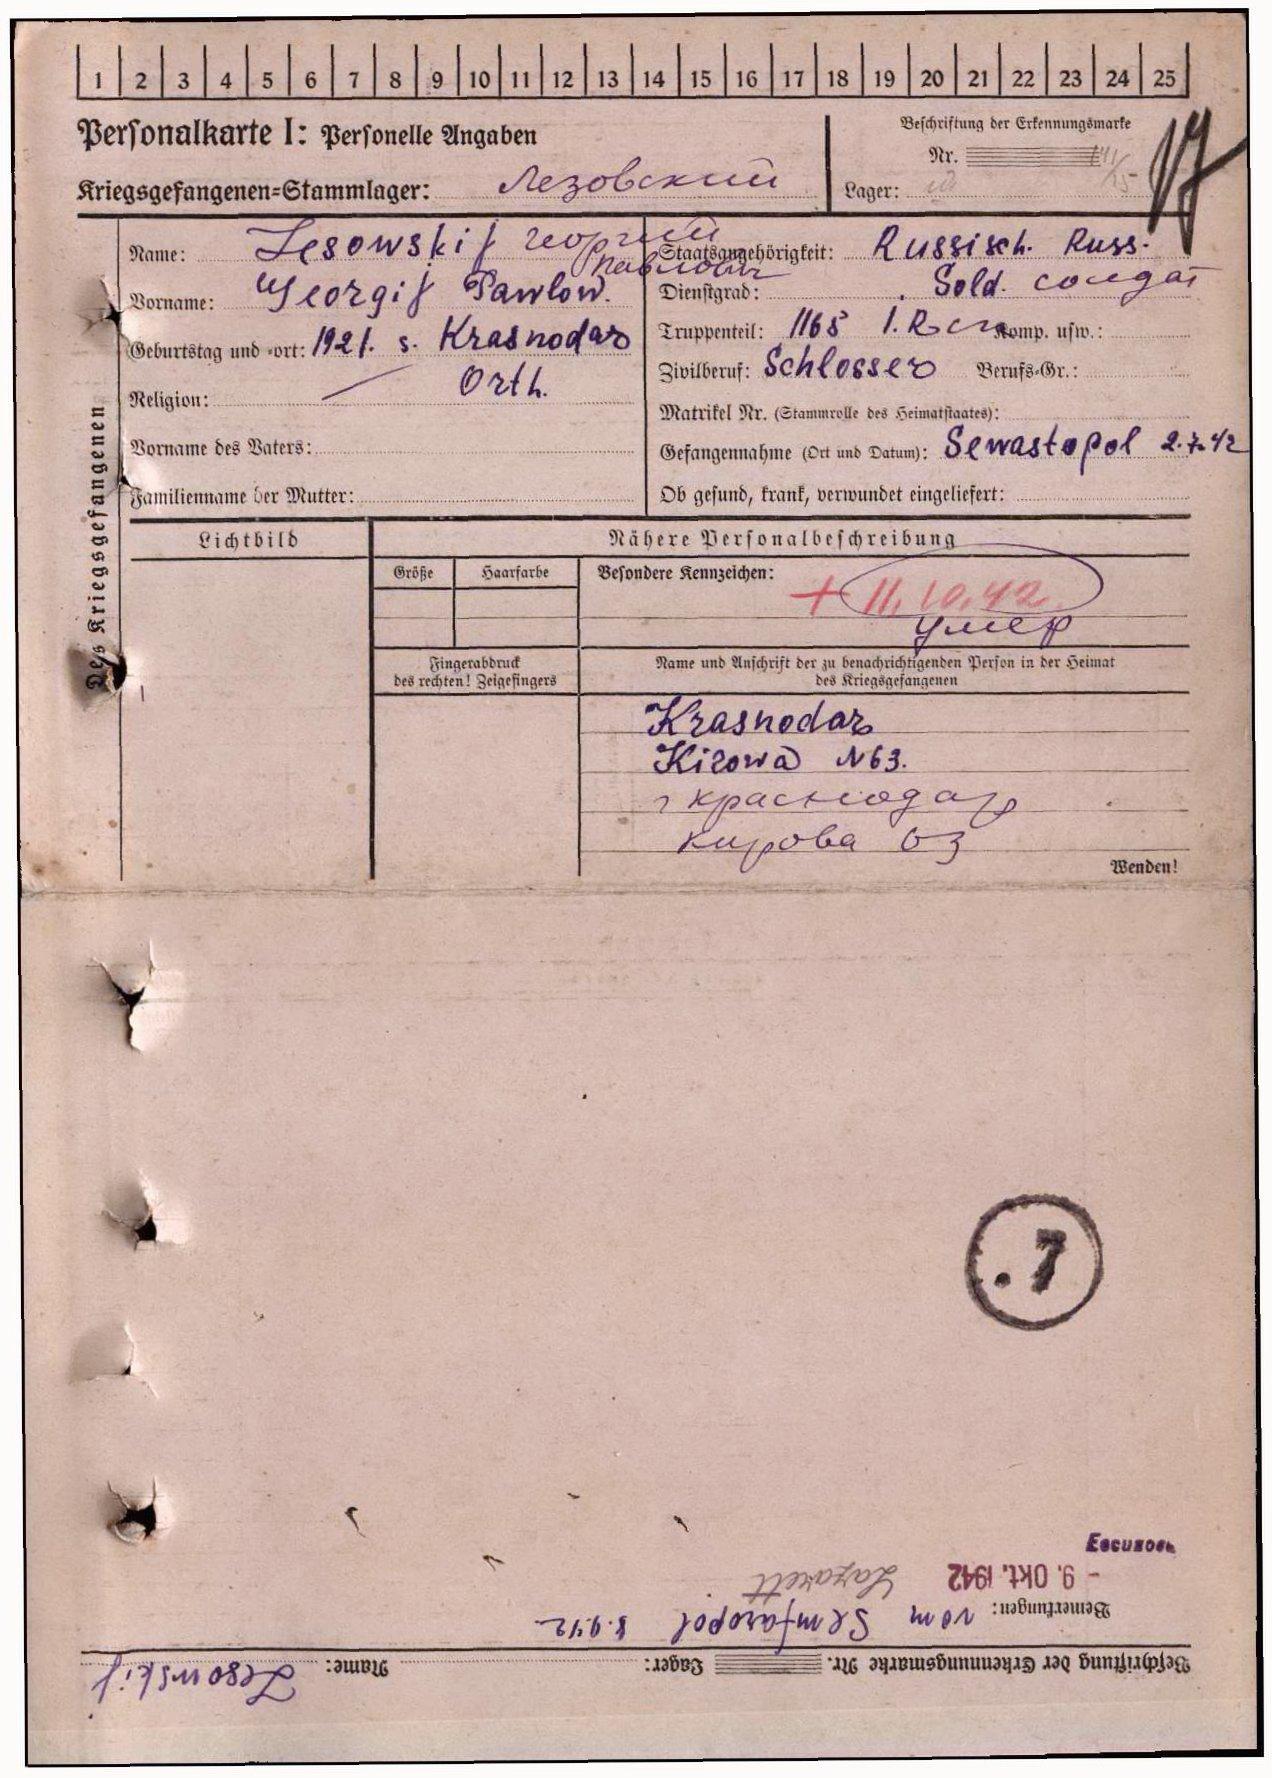 1 2 3 4 5 6 7 8 9 10 11 12 13 14 15 16 17 18 19 20 21 22 23 24 25
Personalkarte I: Personelle Angaben
Kriegsgefangenen-Stammlager: Лезовский
Beschriftung der Erkennungsmarke
Nr.
Lager:
Des Kriegsgefangenen
Name: Lesowskij Георгий
Павлович
Vorname: Georgij Pawlow.
Geburtstag und -ort: 1921. s. Krasnodar
Religion: Orth.
Vorname des Vaters:
Familienname der Mutter:
Staatsangehörigkeit: Russisch. Russ.
Dienstgrad: Sold. солдат
Truppenteil: 1165 Komp. usw.:
Zivilberuf: Schlosser Berufs-Gr.:
Matrikel Nr. (Stammrolle des Heimatstaates):
Gefangennahme (Ort und Datum): Sewastopol 2.7.42
Ob gesund, krank, verwundet eingeliefert:
Lichtbild
Nähere Personalbeschreibung
Größe Haarfarbe Besondere Kennzeichen:
+ 11.10.42
умер
Fingerabdruck
des rechten! Zeigefingers
Name und Anschrift der zu benachrichtigenden Person in der Heimat
des Kriegsgefangenen
Krasnodar
Kirowa N63.
г Краснодар
Кирова 63
Wenden!
. 7
Beschriftung der Erkennungsmarke Nr. Lager: Name: Lesowskij
Bemerkungen: vom Semfaropol 8.9.42
- 9. Okt. 1942 Lazarett